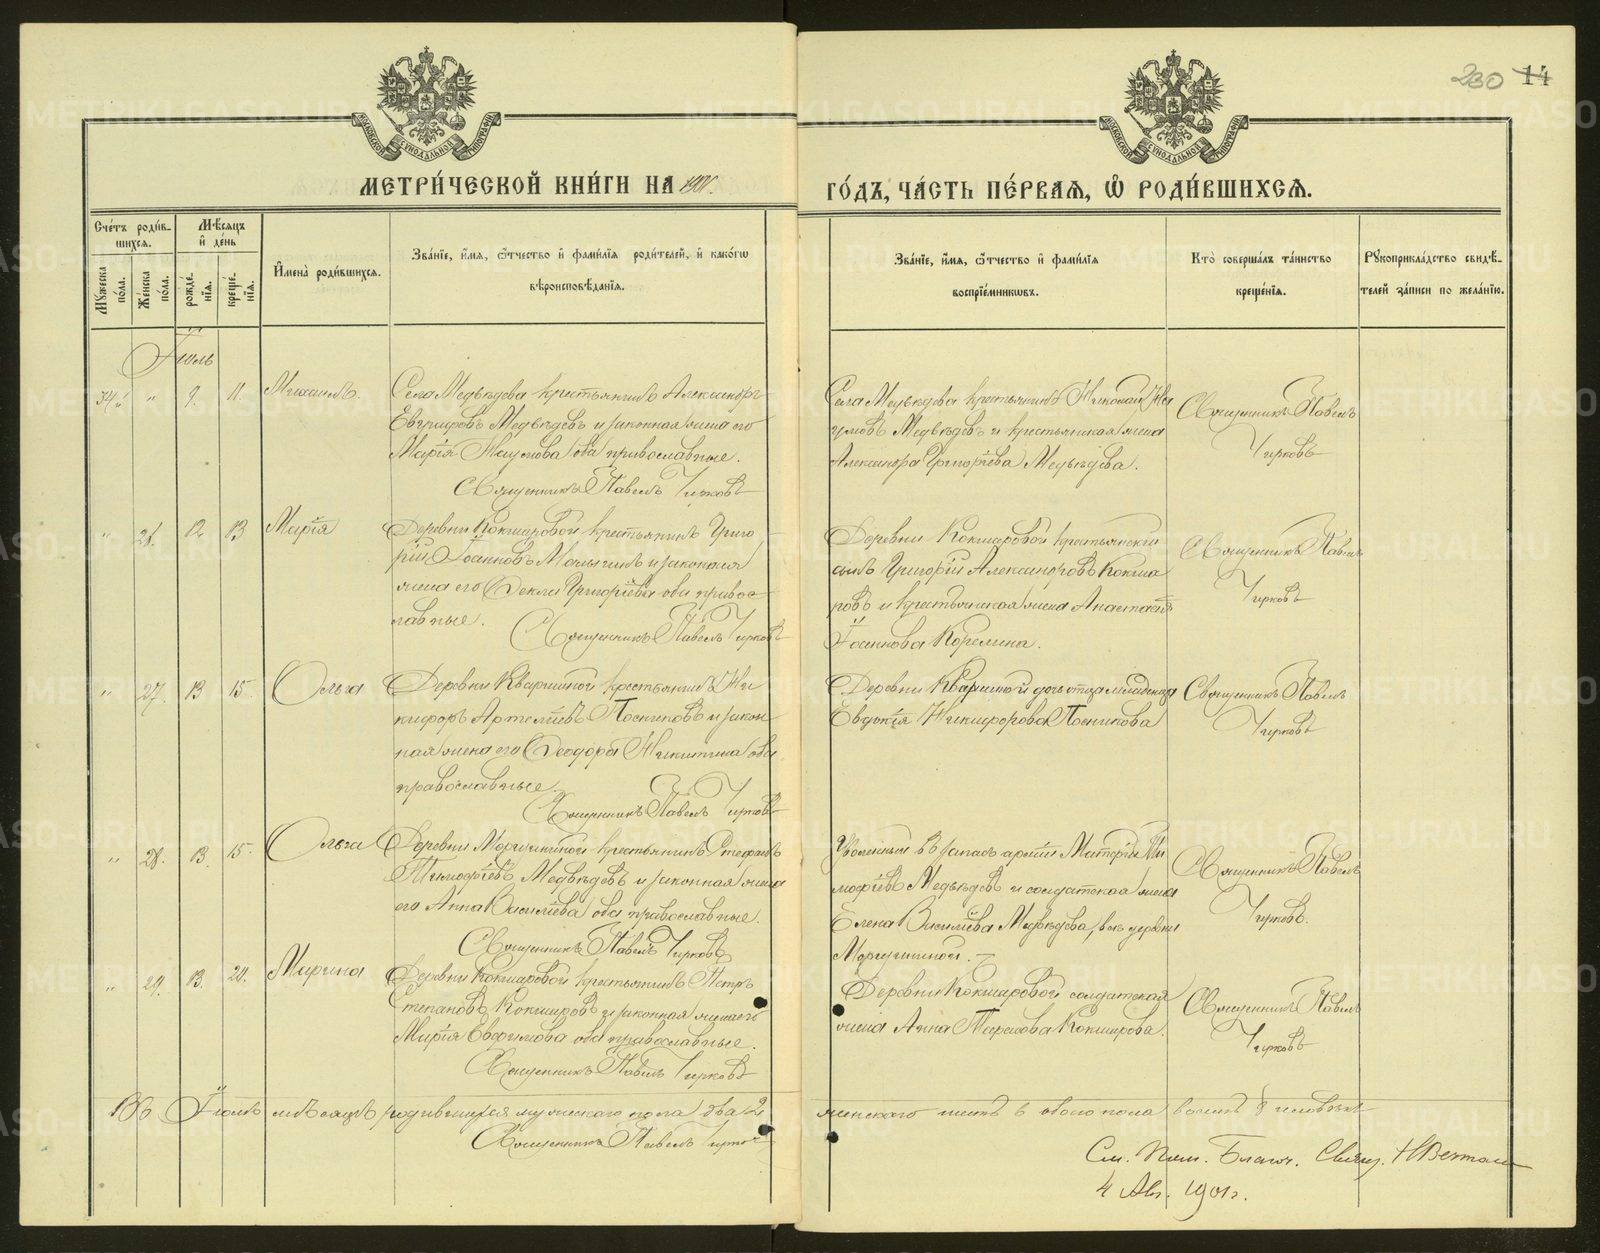 230 14
МЕТРИ́ЧЕСКОЙ КНИ́ГИ НА 1901.
ГО́ДЪ, ЧА́СТЬ ПЕ́РВАЯ, Ѡ РОДИ́ВШИХСЯ.
Сче́тъ роди́в-
шихся.
Мꙋжеска по́ла.
Же́нска по́ла.
Мѣ́сяцъ
и де́нь
рожде́нїя.
креще́нїя.
И҆мена̀ роди́вшихся.
Зва́нїе, и҆́мя, ѻ҆́тчество и҆ фами́лїя роди́телей, и҆ како́гѡ
вѣроисповѣ́данїя.
Зва́нїе, и҆́мя, ѻ҆́тчество и҆ фами́лїя
воспрїе́мникѡвъ.
Кто̀ соверша́лъ та́инство
креще́нїя.
Рꙋкоприкла́дство свидѣ́-
телей за́писи по жела́нїю.
Іюль
34 " 9. 11. Михаилъ.
Села Медвѣдева крестьянинъ Александръ
Евграфовъ Медвѣдевъ и законная жена его
Марія Наумова оба православные.
Священникъ Павелъ Чирковъ
Села Медвѣдева крестьянинъ Николай На
умовъ Медвѣдевъ и крестьянская жена
Александра Григоріева Медвѣдева.
Священникъ Павелъ
Чирковъ
" 26. 12 13 Марія
Деревни Кокшаровой крестьянинъ Григо
рій Іоанновъ и законная
жена его Ѳекла Григоріева оба правос-
лавные.
Священникъ Павелъ Чирковъ
Деревни Кокшаровой крестьянскій
сынъ Григорій Александровъ Кокша
ровъ и крестьянская жена Анастасія
Іоаннова Корелина.
Священникъ Павелъ
Чирковъ
" 27. 13 15. Ольга
Деревни Квашниной крестьянинъ Ни
кифоръ Артеміевъ Посниковъ и закон
ная жена его Ѳеодора Никитина оба
православные.
Священникъ Павелъ Чирковъ
Деревни Квашниной дочь отца младенца
Евдокія Никифорова Посникова
Священникъ Павелъ
Чирковъ
" 28. 13. 15. Ольга
Деревни Моргушиной крестьянинъ Стефанъ
Тимофѣевъ Медвѣдевъ и законная жена
его Анна Василіева оба православные.
Священникъ Павелъ Чирковъ
Уволенный въ запасъ арміи Ти
мофѣевъ Медвѣдевъ и солдатская жена
Елена Василіева Медвѣдева, деревни
Моргушиной.
Священникъ Павелъ
Чирковъ.
" 29. 13. 20. Марина
Деревни Кокшаровой крестьянинъ Петръ
Степановъ Кокшаровъ и законная жена его
Марія Евфимова оба православные.
Священникъ Павелъ Чирковъ
Деревни Кокшаровой солдатская
жена Анна Тарасова Кокшарова.
Священникъ Павелъ
Чирковъ
Въ Іюлѣ мѣсяцѣ родившихся мужескаго пола два 2
женскаго шесть 6 обоего пола восемь 8 человѣкъ
Священникъ Павелъ
См. Пом. Благоч. Свящ.
4 Авг. 1901 г.
METRIKI.GASO-URAL.RU